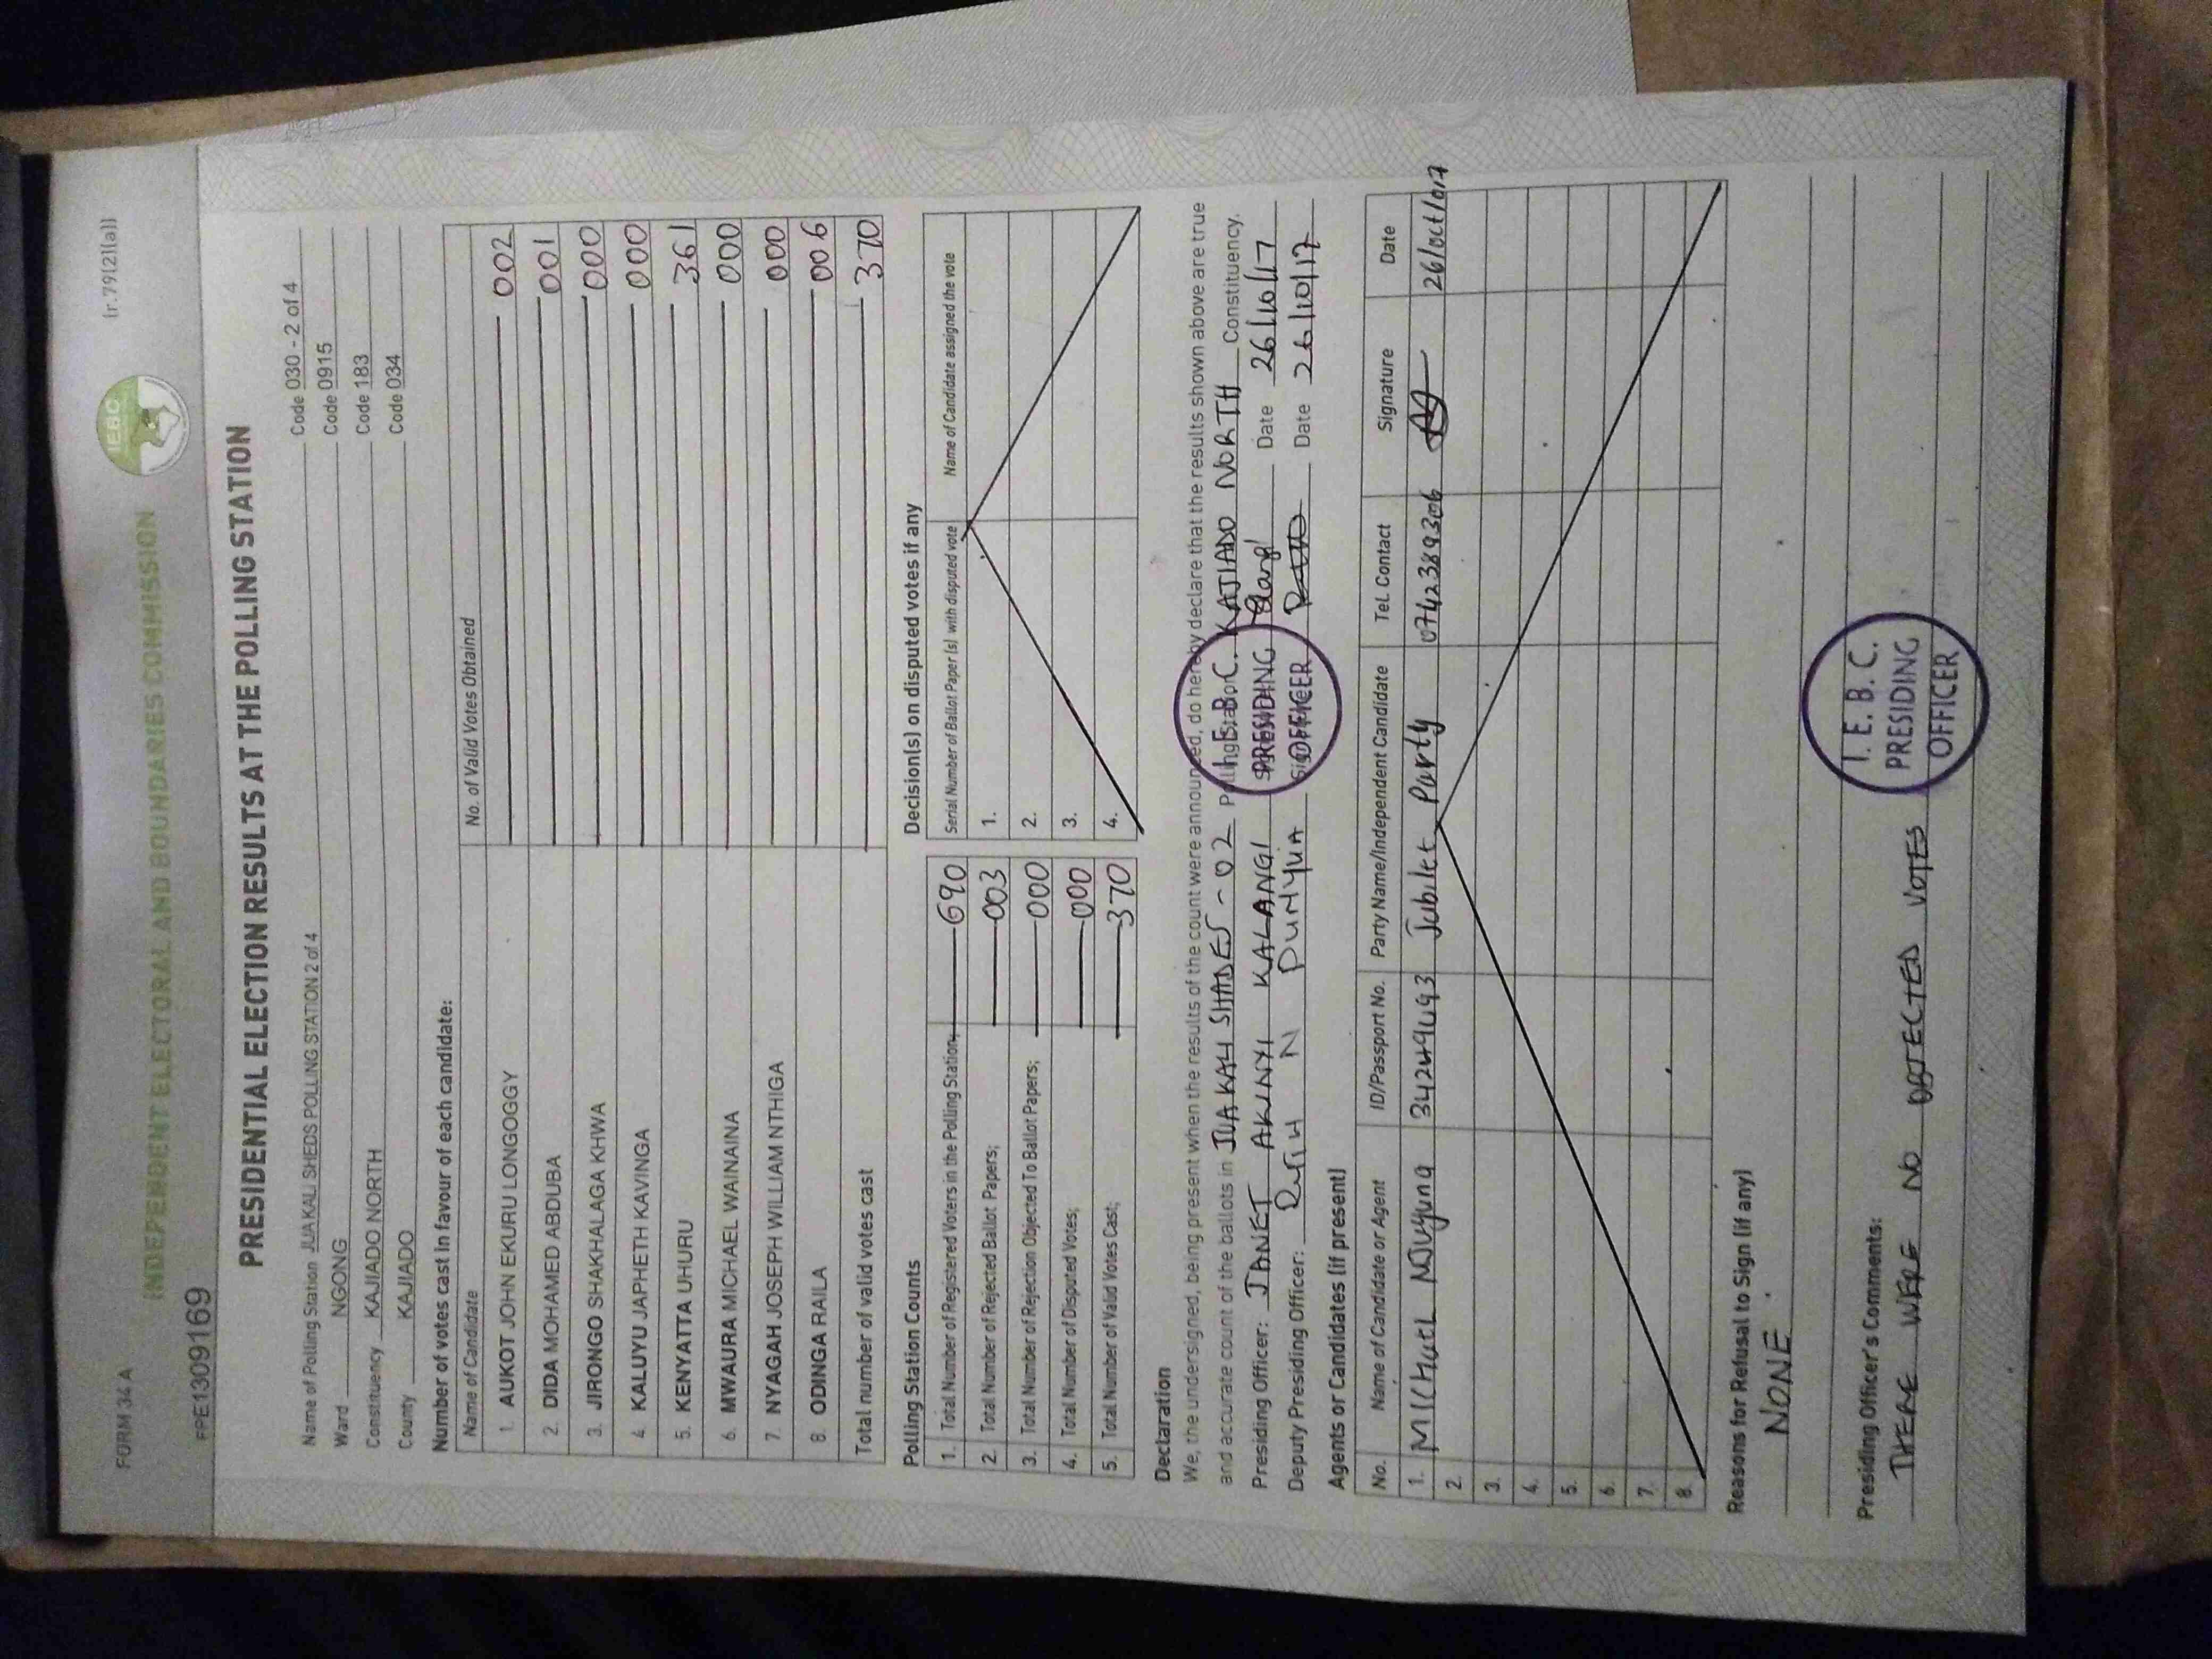 FORM 34 A
(r.79(2)(a))
IEBC
INDEPENDENT ELECTORAL AND BOUNDARIES COMMISSION
PPE1309169
PRESIDENTIAL ELECTION RESULTS AT THE POLLING STATION
Name of Polling Station JUA KALI SHEDS POLLING STATION 2 of 4 Code 030 - 2 of 4
Ward NGONG Code 0915
Constituency KAJIADO NORTH Code 183
County KAJIADO Code 034
Number of votes cast in favour of each candidate:
Name of Candidate No. of Valid Votes Obtained
1. AUKOT JOHN EKURU LONGOGGY 002
2. DIDA MOHAMED ABDUBA 001
3. JIRONGO SHAKHALAGA KHWA 000
4. KALUYU JAPHETH KAVINGA 000
5. KENYATTA UHURU 361
6. MWAURA MICHAEL WAINAINA 000
7. NYAGAH JOSEPH WILLIAM NTHIGA 000
8. ODINGA RAILA 006
Total number of valid votes cast 370
Polling Station Counts
1. Total Number of Registered Voters in the Polling Station; 690
2. Total Number of Rejected Ballot Papers; 003
3. Total Number of Rejection Objected To Ballot Papers; 000
4. Total Number of Disputed Votes; 000
5. Total Number of Valid Votes Cast; 370
Decision(s) on disputed votes if any
Serial Number of Ballot Paper (s) with disputed vote Name of Candidate assigned the vote
1.
2.
3.
4.
Declaration
We, the undersigned, being present when the results of the count were announced, do hereby declare that the results shown above are true
and accurate count of the ballots in JUAKALI SHADES - 02 Polling Station KAJIADO NORTH Constituency.
Presiding Officer: JANET AKINYI KALANGI Date 26/10/17
Deputy Presiding Officer: N Date 26/10/17
I.E.B.C. PRESIDING OFFICER
Agents or Candidates (if present)
No. Name of Candidate or Agent ID/Passport No. Party Name/Independent Candidate Tel. Contact Signature Date
1. Njuguna 34249493 Jubilee Party 0742389306 26/Oct/017
2.
3.
4.
5.
6.
7.
8.
Reasons for Refusal to Sign (if any)
NONE
Presiding Officer's Comments:
THERE WERE NO OBJECTED VOTES
I. E. B. C.
PRESIDING
OFFICER